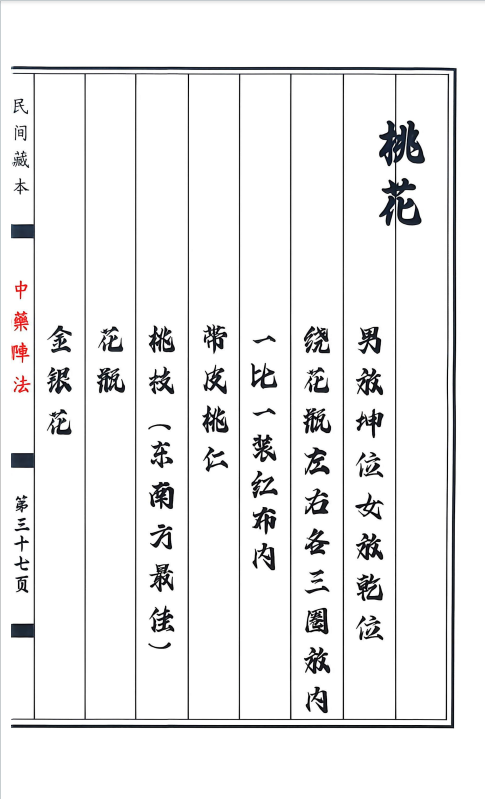 桃花
男放坤位女放乾位
绕花瓶左右各三圈放内
一比一装红布内
带皮桃仁
桃枝（东南方最佳）
花瓶
金银花
民间藏本
中藥陣法
第三十七页